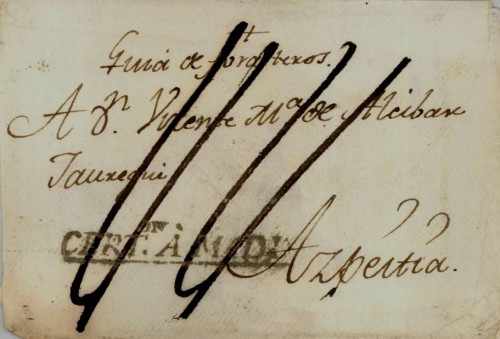 Guia de forasteros.
A Dn. Vicente Mª. de Alcibar
Jauregui
CERT. DN À MADD.
Azpeitia.